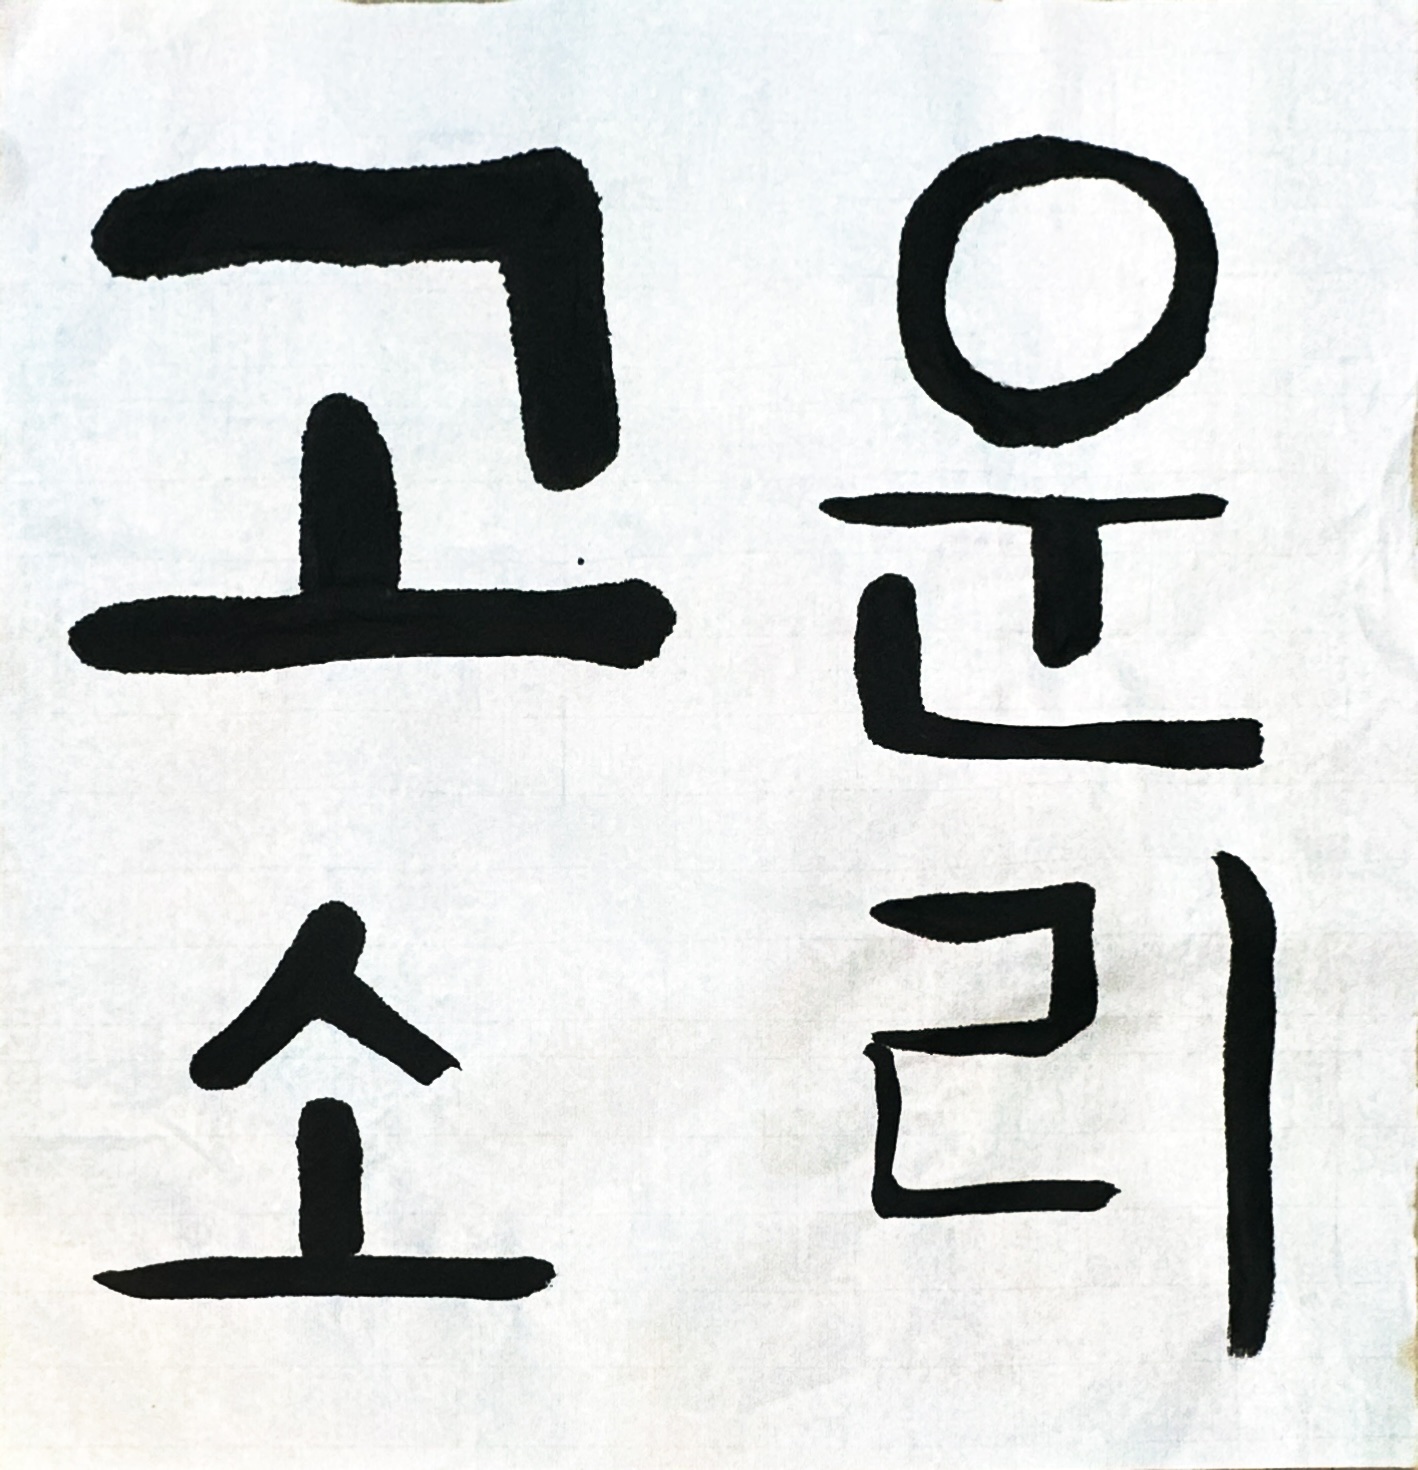 고운
소리